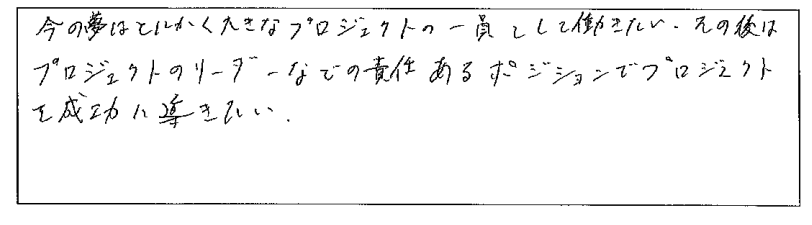 今の夢はとにかく大きなプロジェクトの一員として働きたい。その後は
プロジェクトのリーダーなどの責任あるポジションでプロジェクト
を成功に導きたい。